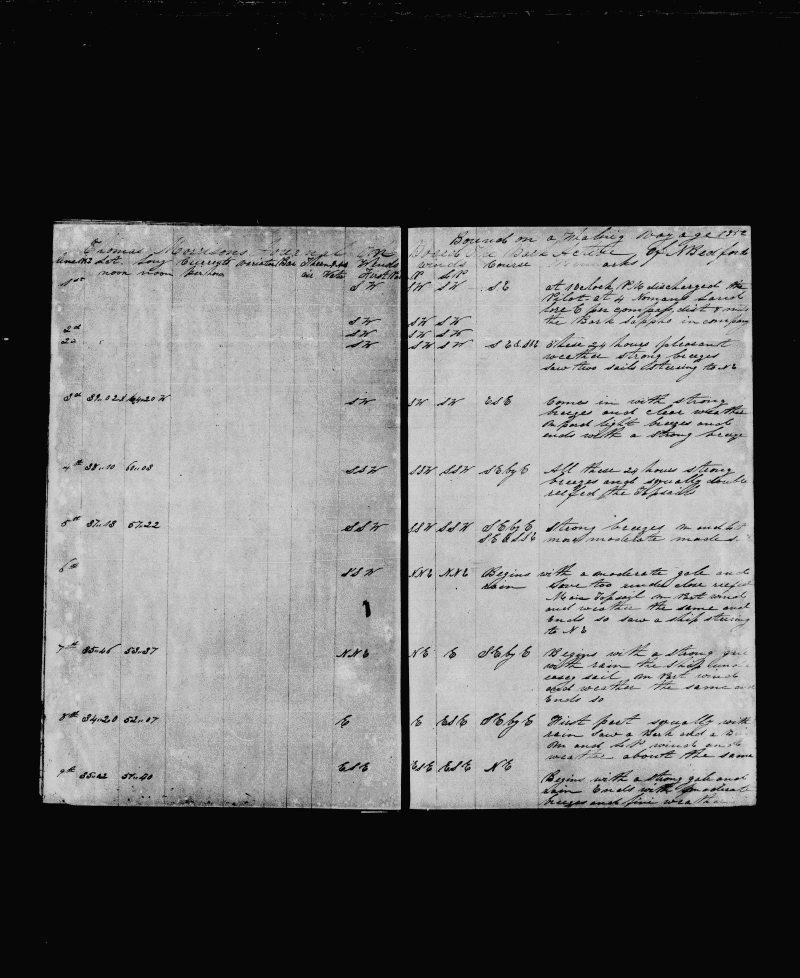 Bound on a Whaling Voyage 1852
Thomas Morrisons Journal on Board The Bark of N Bedford
Lat Long Currents variation Bar Thermo Winds winds Course Remarks
noon noon per hour air Water First Part M P L P
1st SW SW SW SE at 1 oclock P M discharged the
Pilot at 4 Nomans Land
bore E per compass, dist 8 miles
2d SW SW SW the Bark Sappho in company
SW SW SW
2d SW SW SW SE & SSE These 24 hours pleasant
weather strong breezes
saw two sails steering to NE
3d 39..02 64..20 W SW SW SW ESE Comes in with strong
breezes and clear weather
M part light breezes and
ends with a strong breeze
4th 38..10 60..03 SSW SSW SSW SE by E All these 24 hours strong
breezes and squally double
reefed the Topsails
5th 37..13 57..22 SSW SSW SSW SE by E strong breezes M and L P
SE & SSE more moderate made s
6th SSW NNE NNE Begins with a moderate gale and
rain hove too under close reefed
Main Topsail M Part wind
and weather the same and
Ends so saw a ship steering
to NE
7th 35..46 53..37 NNE NE E SE by E Begins with a strong gale
with rain the ship under
easey sail M Part wind
and weather the same and
Ends so
8th 34..20 52..07 E E ESE SE by E First part squally with
rain saw a Bark and a
M and L P wind and
weather about the same
9th 51..40 ESE ESE ESE NE
Begins with a strong gale and
rain Ends with moderate
breezes and fine weather